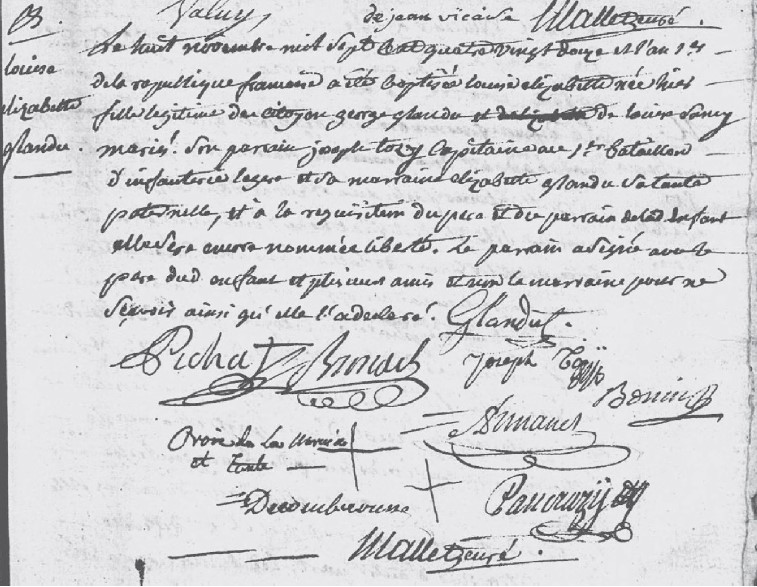 B
Louise
elizabette
glandu.
Valuy,
de jean vicaise Mallet curé.
Le huit novembre mil sept cent quatre vingt douze et l'an 1er
de la republique francoise a été baptisée louise elizabette née hier
fille legitime du citoyen george glandu et de louise
mariés. Son parrain joseph Capitaine au 1er bataillon
d'infanterie legere et sa marraine elizabette glandu sa tante
paternelle, et a la requisition du pere et du parrain de lad. enfant
elle sera encore nommée liberté. Le parrain a signé avec le
pere dud. enfant et plusieurs amis et non la marraine pour ne
sçavoir ainsi qu'elle l'a declaré. Glandut.
Pichat
Joseph
Bonin
Arnaud
Croix de la
et tante
Mallet curé.